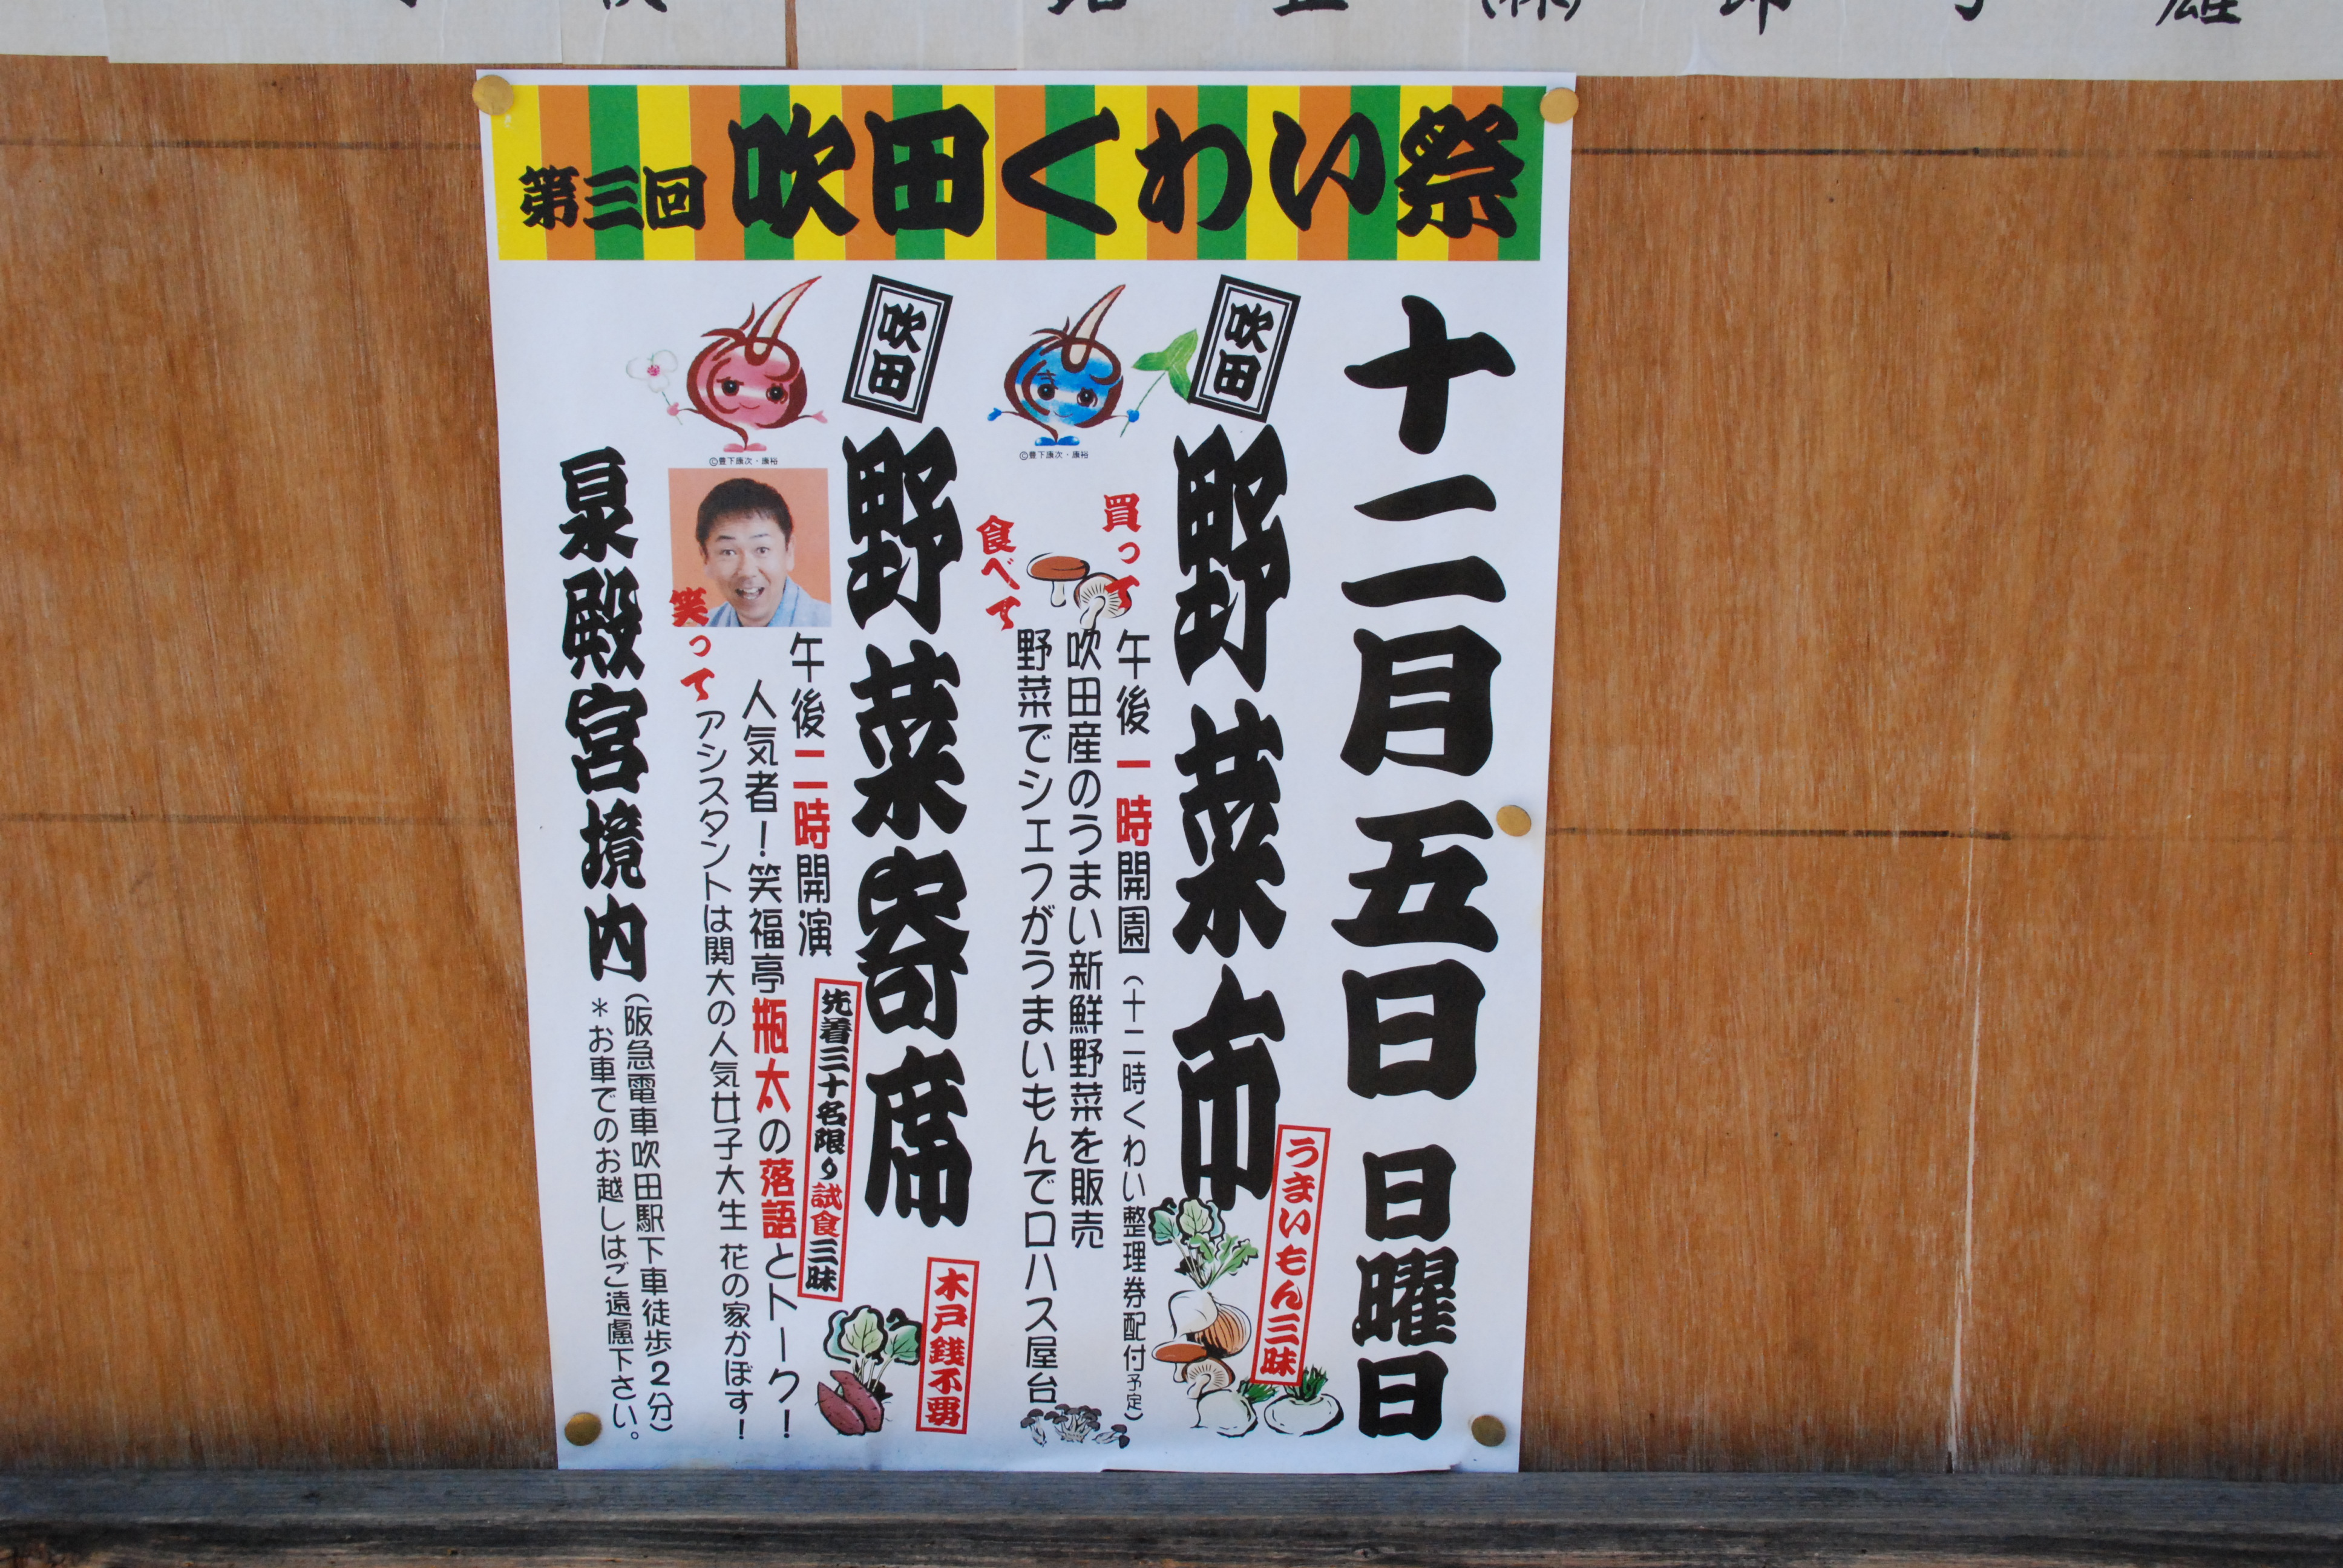 第三回 吹田くわい祭
十二月五日 日曜日
うまいもん三昧
吹田
野菜市
買って
午後一時開園（十二時くわい整理券配付予定）
吹田産のうまい新鮮野菜を販売
食べて
野菜でシェフがうまいもんでロハス屋台
©豊下康次・康裕
吹田
野菜寄席
木戸銭不要
先着三十名限り試食三昧
午後二時開演
人気者！笑福亭瓶太の落語とトーク！
笑って
アシスタントは関大の人気女子大生 花の家かぼす！
©豊下康次・康裕
泉殿宮境内
（阪急電車吹田駅下車徒歩2分）
＊お車でのお越しはご遠慮下さい。